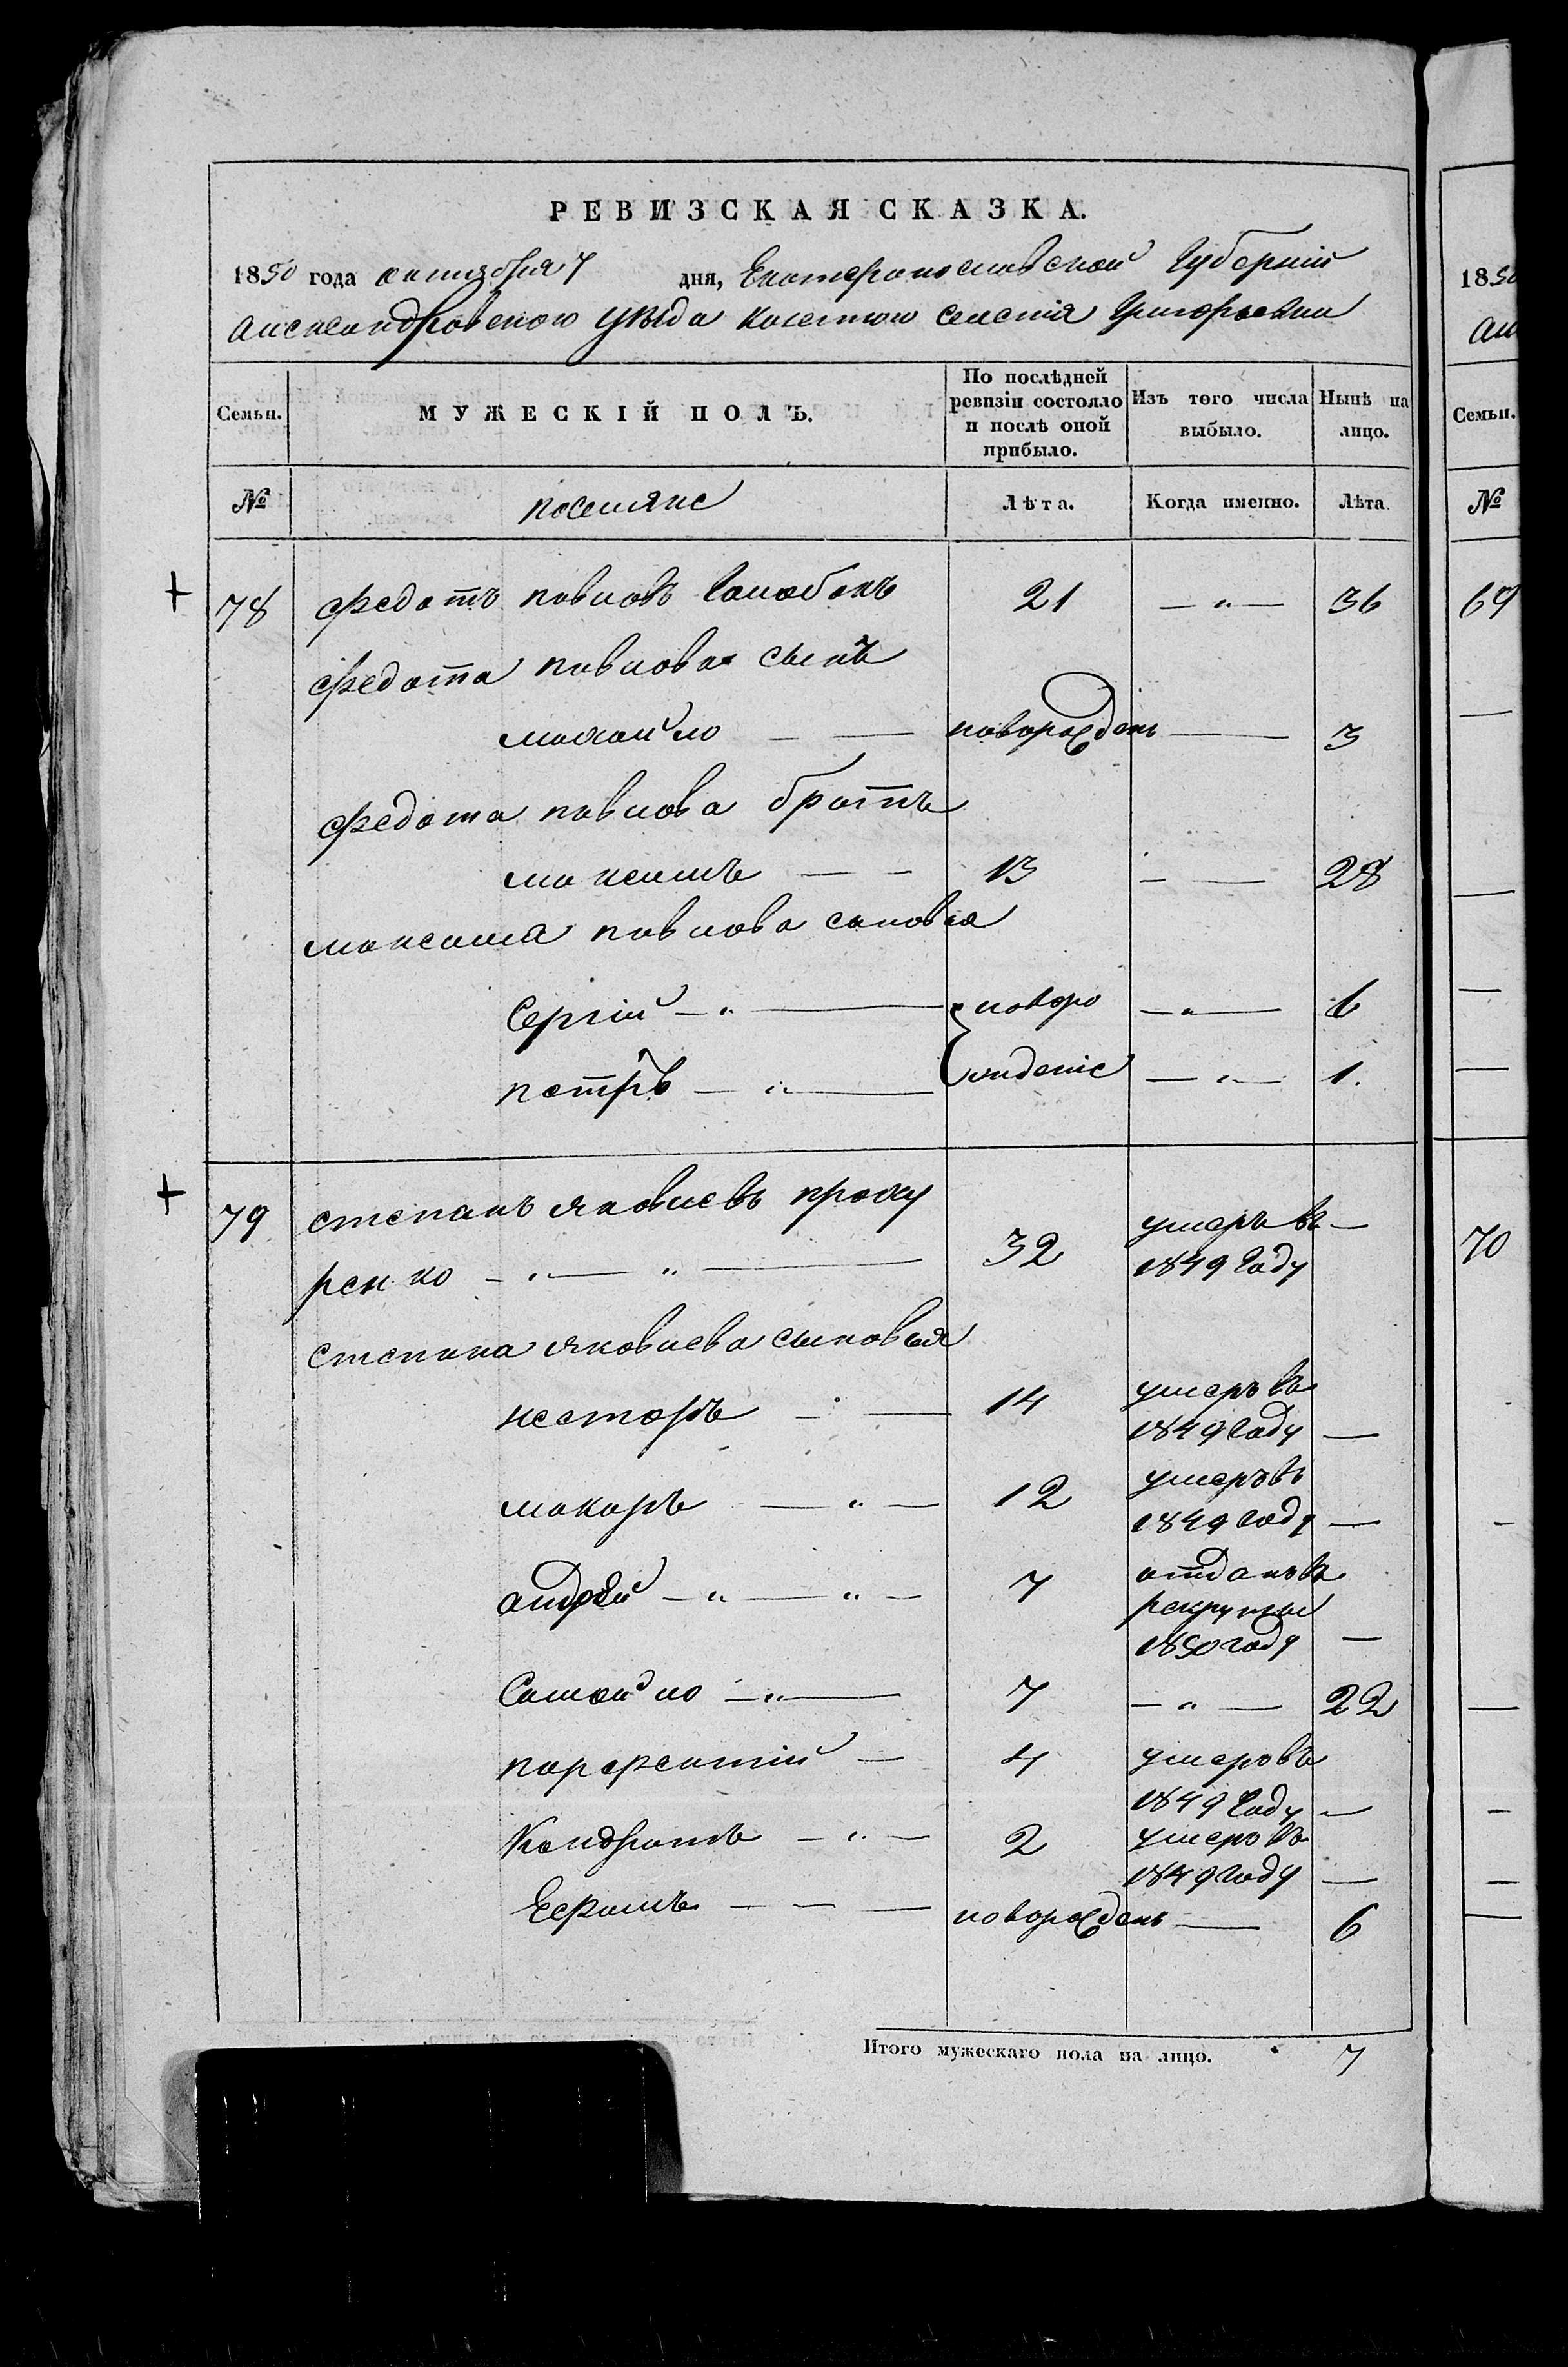 РЕВИЗСКАЯ СКАЗКА.
1850 года октября 7 дня, Екатеринославской Губерніи
Александровского уѣзда казенного селенія Григорьевки
Семьи.
МУЖЕСКІЙ ПОЛЪ.
По послѣдней ревизіи состояло и послѣ оной прибыло.
Изъ того числа выбыло.
Нынѣ на лицо.
№ поселяне Лѣта. Когда именно. Лѣта
78 Федотъ павловъ 21 — " — 36
Федота павлова сынъ
михайло — — новорожденъ — 3
Федота павлова братъ
максимъ — — 13 — — 28
максима павлова сыновья
Сергій — " — новоро — " — 6
петръ — " — жденіе — " — 1.
79 степанъ яковлевъ проху
ренко — " — " — 32 умеръ въ 1849 Году —
степана яковлева сыновья
несторъ — — 14 умеръ въ 1849 Году —
макаръ — " — 12 умеръ въ 1849 году —
андрей — " — " — 7 отданъ въ рекруты 1850 году —
Самойло — " — 7 — " — 22
парфентій — 4 умеръ въ 1849 Году —
Кондратъ — " — 2 умеръ въ 1849 Году —
Ефимъ — — — новорожденъ — 6
Итого мужескаго пола на лицо. 7
1850
Семьи.
№
69
70